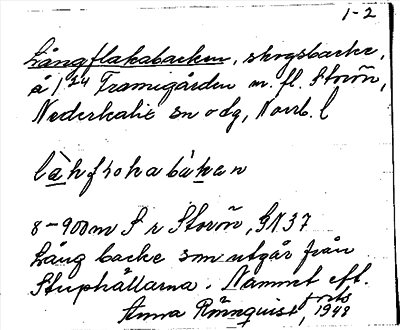 1-2
Långflakabacken, skogsbacke,
å 1²⁴ Framigården m. fl. Storön,
Nederkalix sn o dg, Norrb. l
8-900 m S r Storön, GN37
Lång backe som utgår från
Stuphällarna. Namnet eft.
forts
Anna Rönnquist, 1948